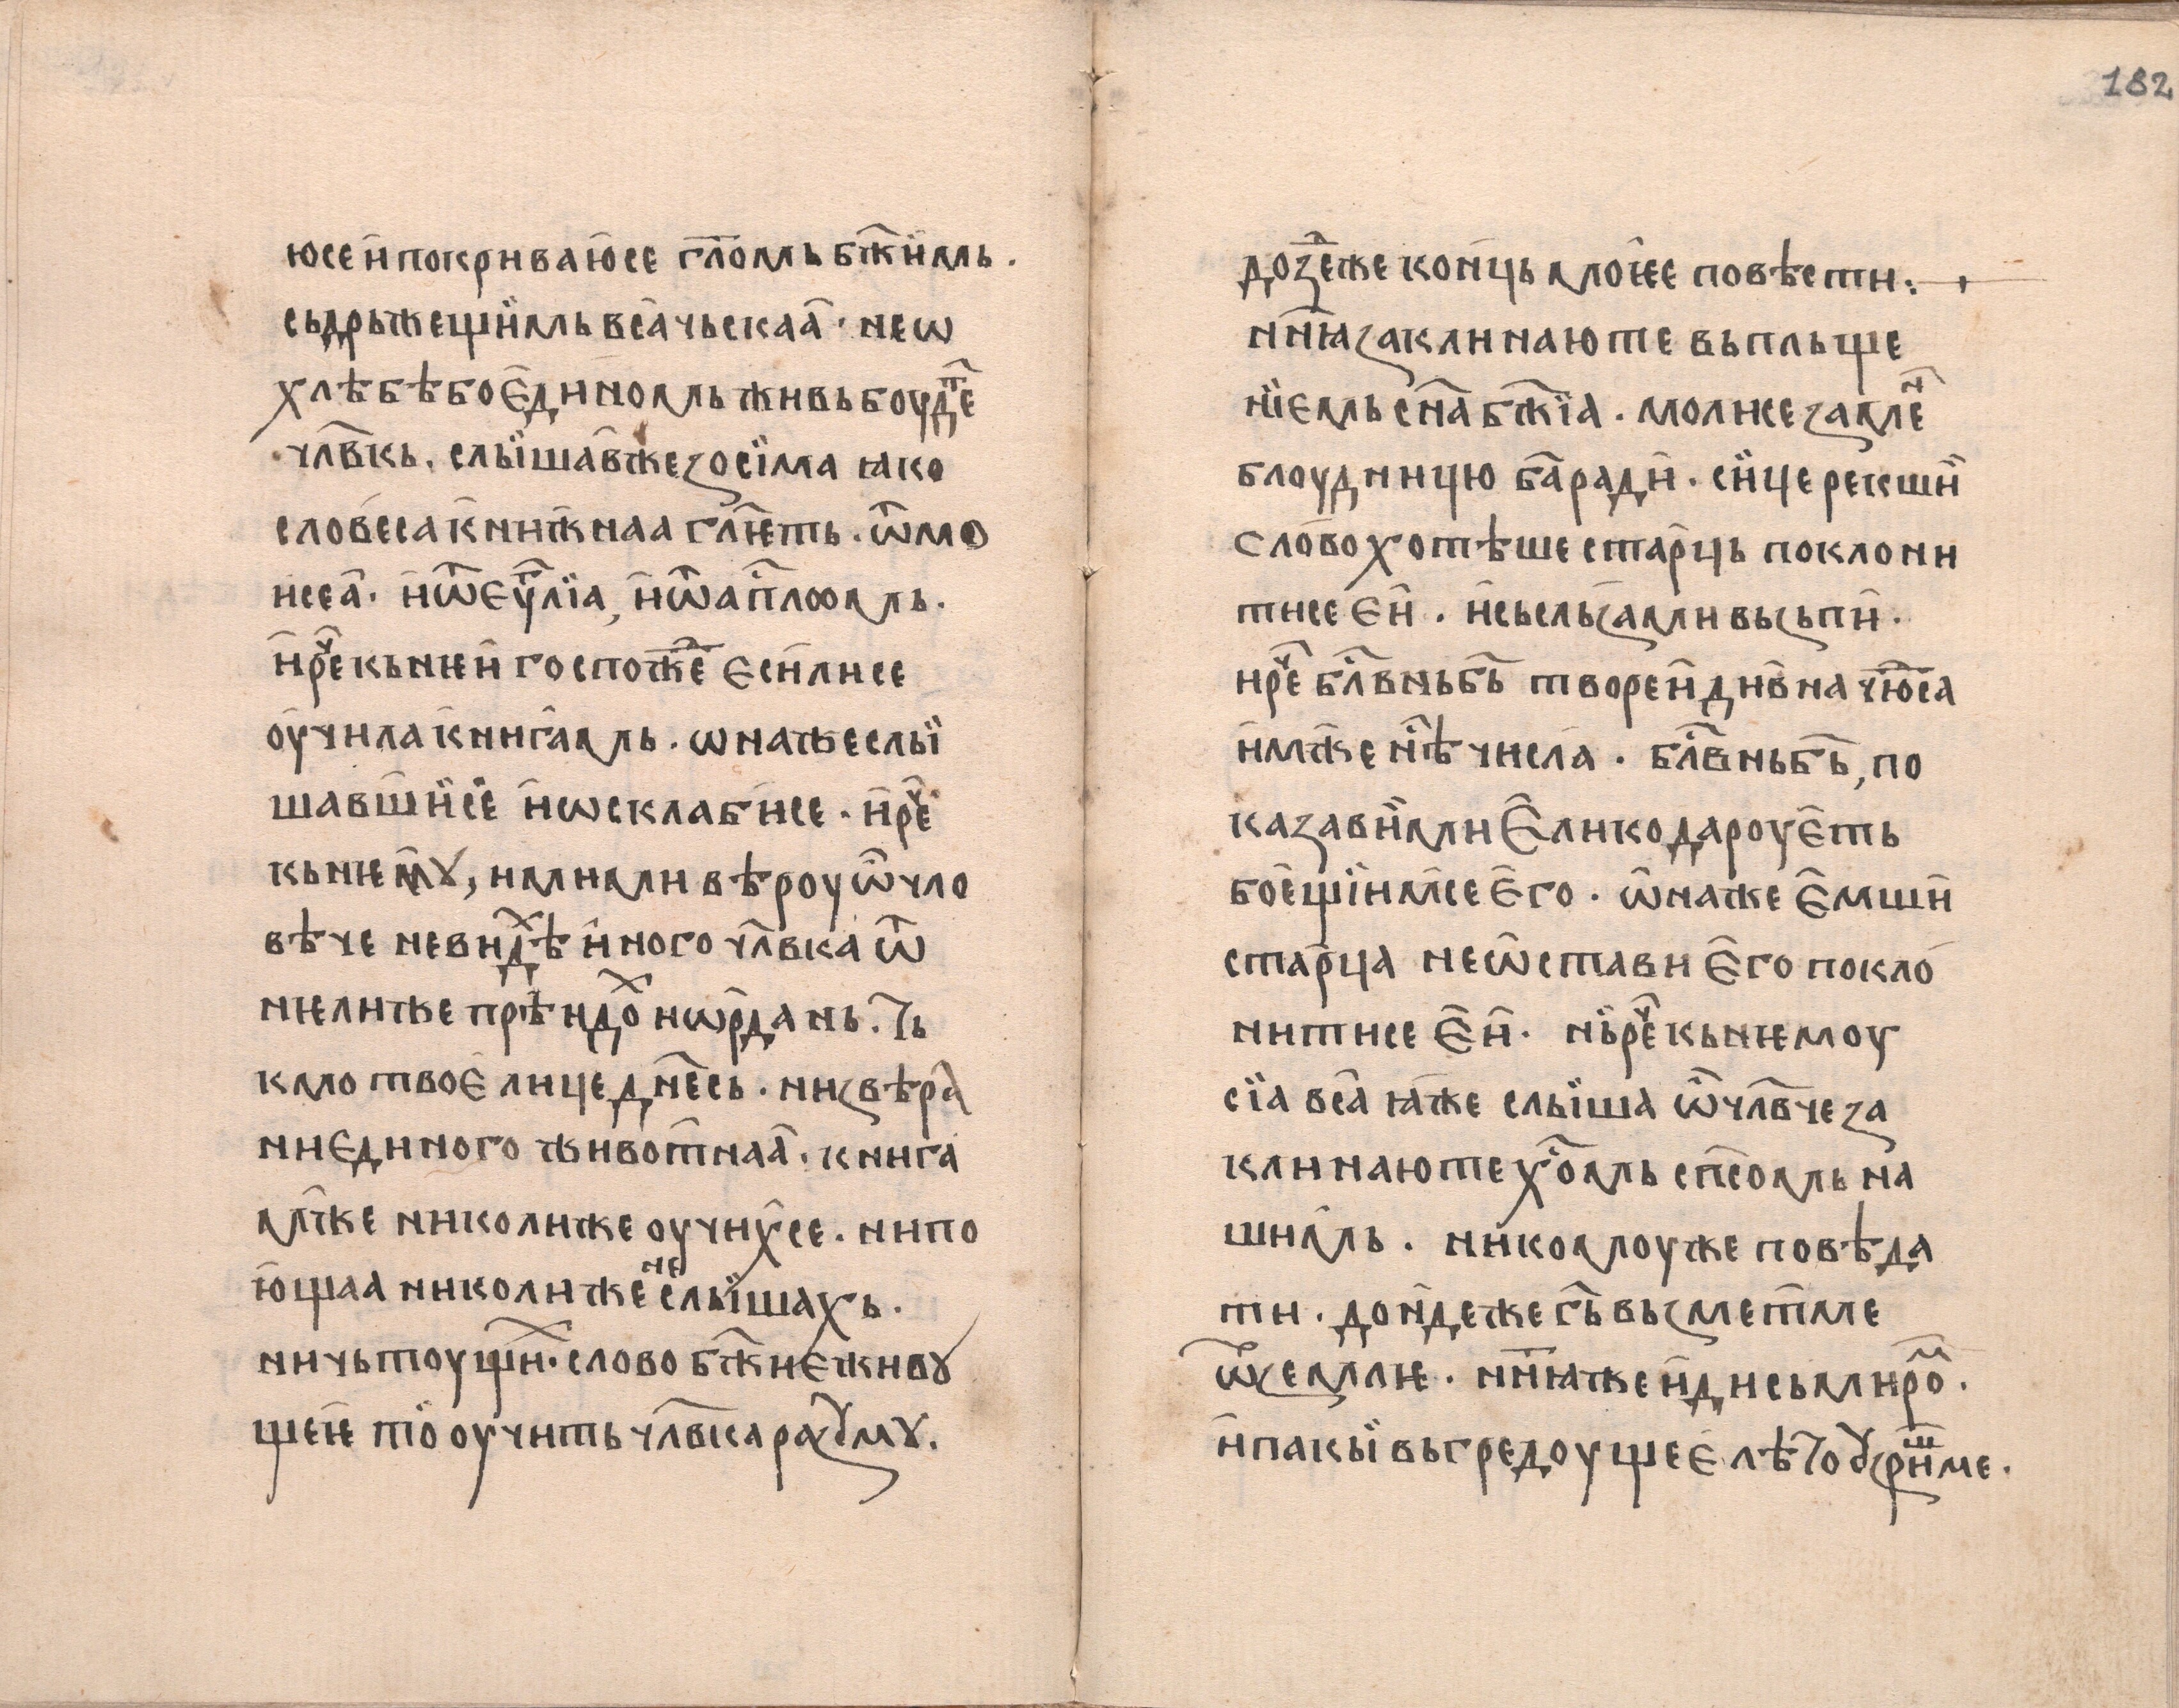 юсе и҆ покриваю҆се гл҃омь бж҃їимь .
сьдрьжещіи҆мь вса̑чьскаа̑ . не ѡ
хлѣбѣ бо є҆диномь живь боудеⷮ
чл҃вкь . слӹшав̾же зосїма ꙗко
словеса кни҆жнаа гл҃ѥть . ѿ мѡ
исеа̑ . и҆ ѿ єѵⷢ҇лїа , и҆ ѿ а҆пⷭ҇лоѡмь .
и҆ реⷱ҇ кь нѥи҆ госпожеⷣ є҆си҆ ли се
оу҆чила кни҆гамь . ѡна же слӹ
шавши̏ сїе̏ и҆ ѡсклаби се . и҆ реⷱ҇
кь нѥмꙋ , ими ми вѣроу ѿ чло
вѣче не видѣⷯ и҆ного чл҃вка ѿ
нѥлиже прѣи҆доⷯ иѡ҆рдань . ть
кмо твоє҆ лице дн҃есь . ни звѣра̀
ни єдиного животнаа̑ . книга
м же николиже оучих се . ни по
ю҆щаа николиже не слӹшахь .
ни чьтоущиⷯ . слово бж҃иє живꙋ
щеѥ̑ тїо оучить чл҃вка разꙋмꙋ .
182
до зⷣе же кон̾ць моѥ҆е повѣсти :
нн҃ꙗ заклинаю те вьпльще
нїємь сн҃а бж҃їа . моли се за меⷩ
блоудницю ба҃ ради̑ . си̏це рек̾ши̏
слово̑ хотѣше стар̾ць поклони
ти се є҆и̑ . и҆ сь сльзами вьзьпи̑ .
и реⷱ҇ блⷭ҇внь бь҃ творе̑и див̾на чю҆са
и҆м̾же нⷭ҇ѣ числа̀ . блⷭ҇внь бь҃ , по
казави̏ ми є҆лико дароуєть
бое̑щїим се є҆го . ѡ҆на же є҆мши̑
стар̾ца не ѡ҆стави є҆го покло
нити се є҆и̑ . нь̏ реⷱ҇ кь нѥмоу
сїа вса̑ ꙗ҆же слӹша ѿ чл҃вче за
клинаю те хⷭ҇омь сп҃сомь на
ши̑мь . никомоуже повѣда
ти . дои҆деже гь҃ вьзмет̾ ме
ѿ земліѥ . нн҃ꙗ же и҆ди сь миромⷨ .
и҆ пакӹ вь гредоущеє҆ лѣто ꙋзришⷲ ме .